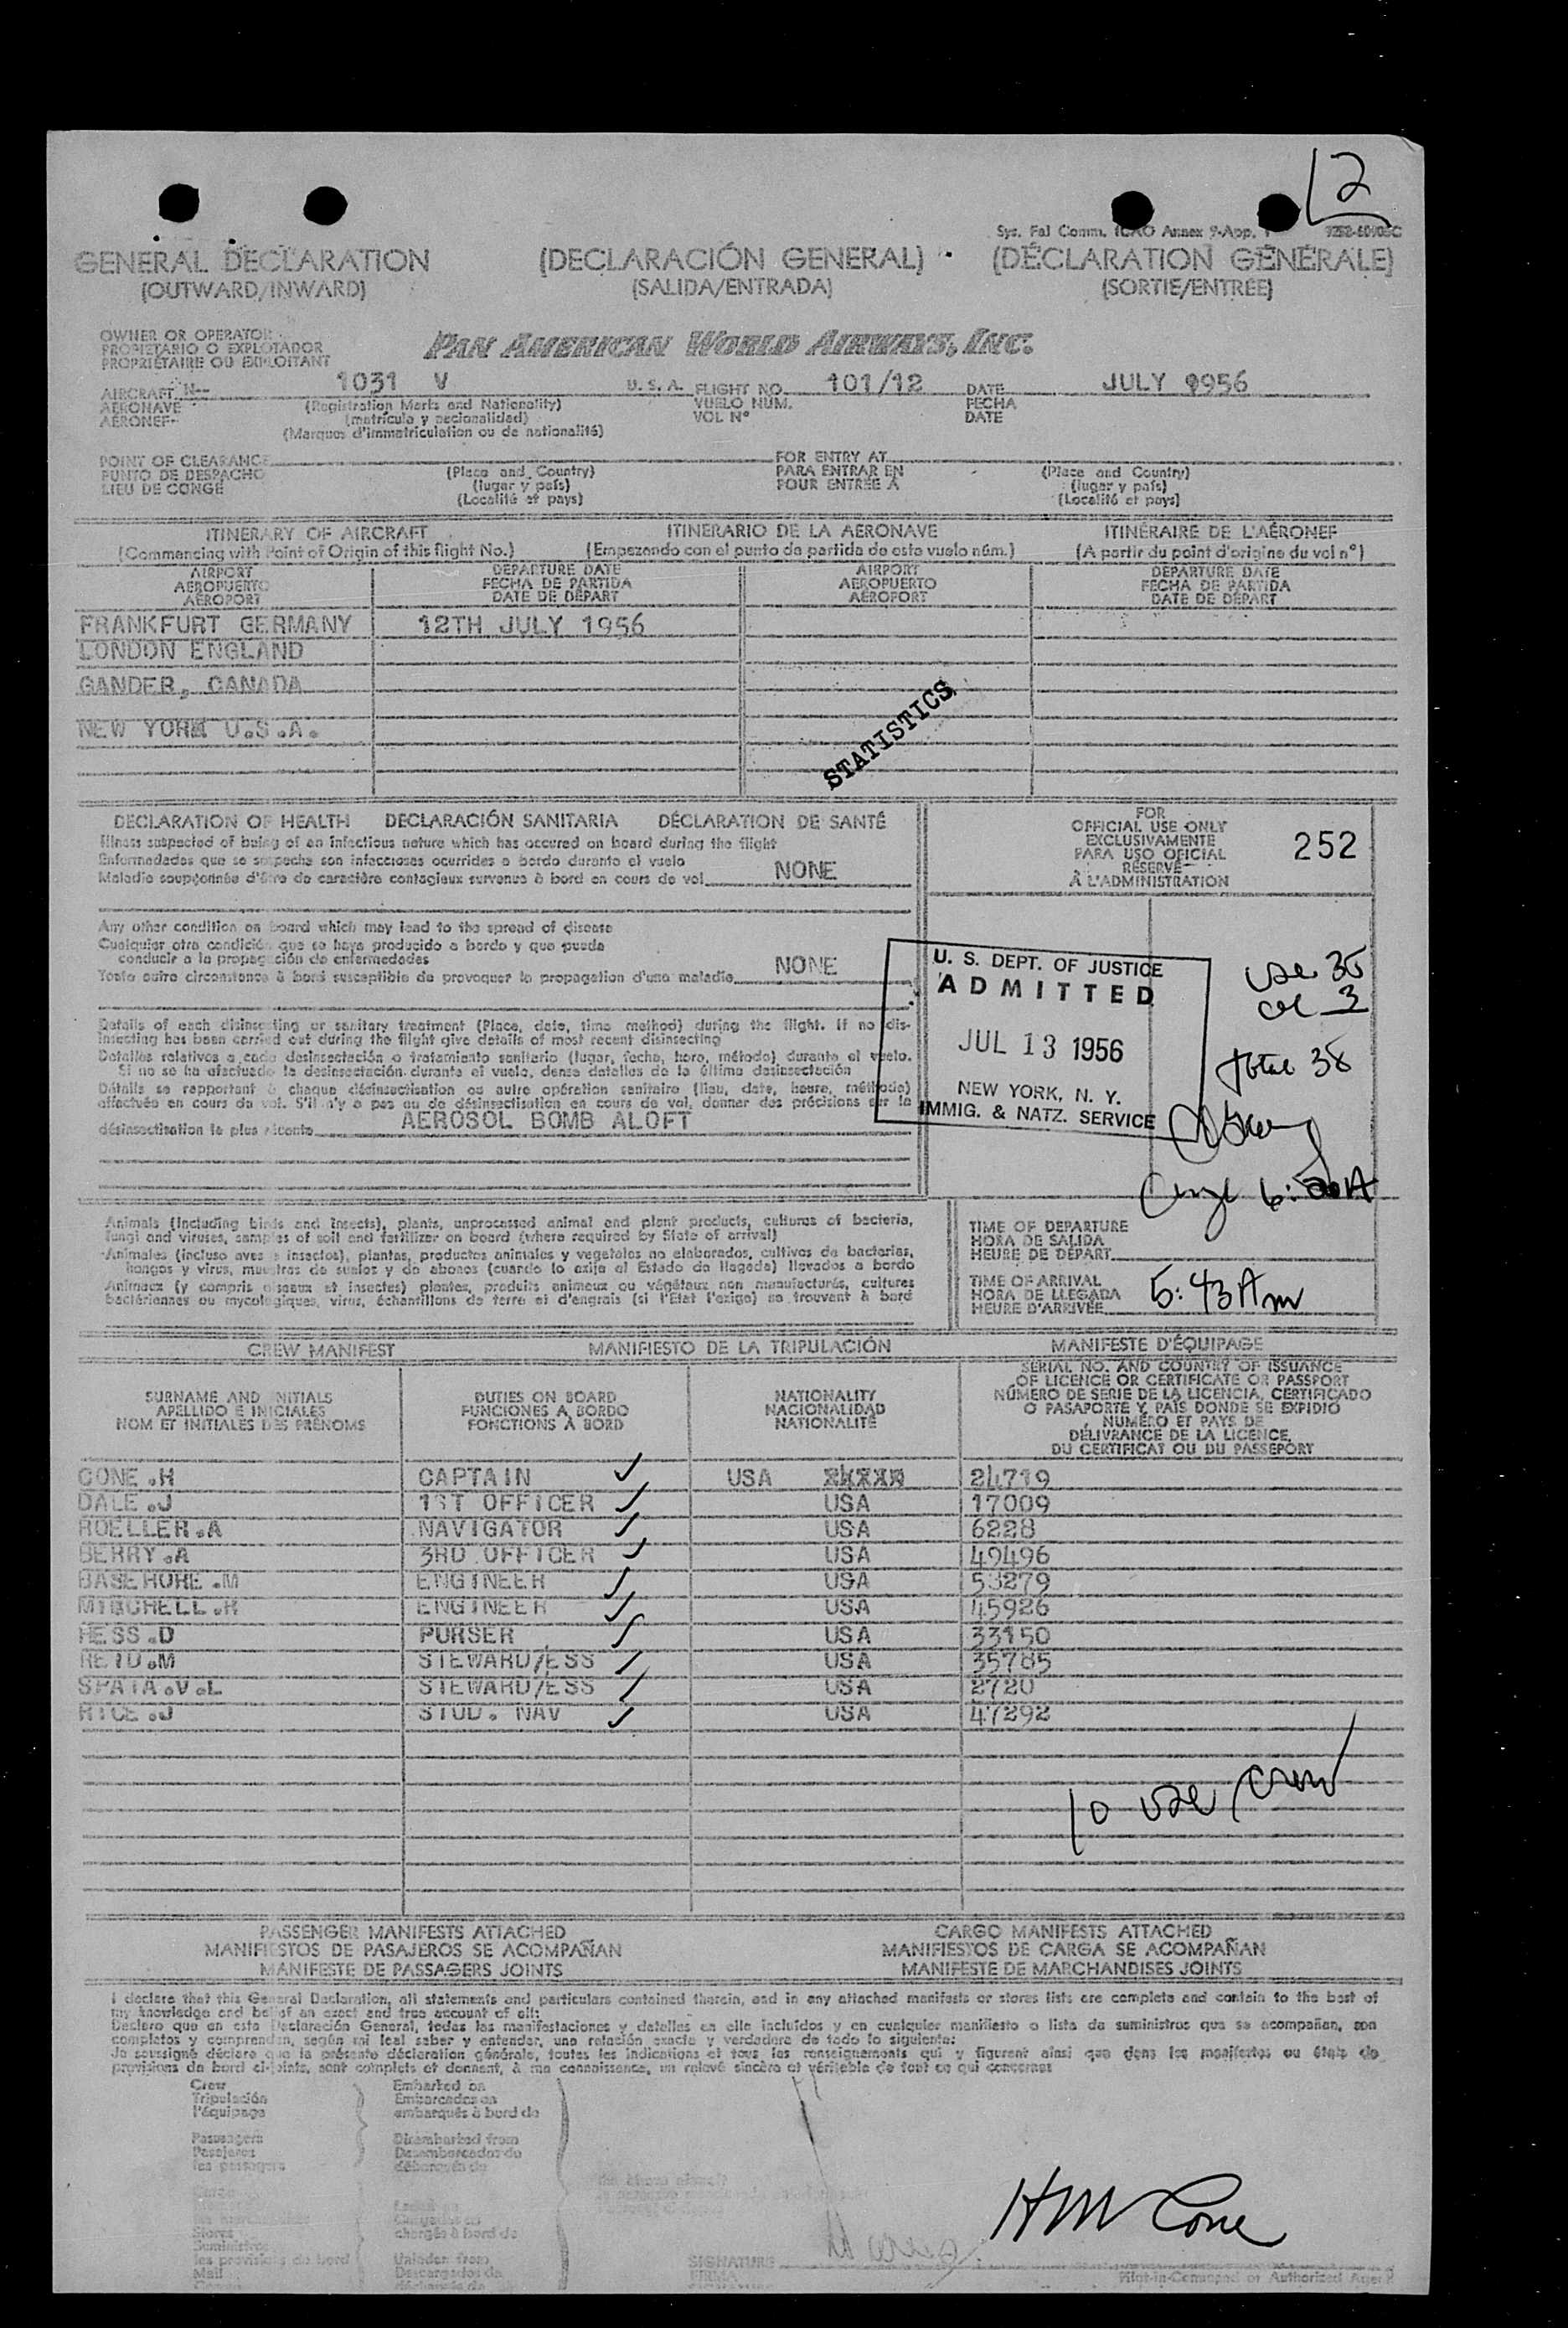 2
Sys. Fal Comm. ICAO Annex 9-App. 1
GENERAL DECLARATION (DECLARACIÓN GENERAL) (DÉCLARATION GÉNÉRALE)
(OUTWARD/INWARD) (SALIDA/ENTRADA) (SORTIE/ENTRÉE)
OWNER OR OPERATOR
PROPIETARIO O EXPLOTADOR
PROPRIÉTAIRE OU EXPLOITANT
PAN AMERICAN WORLD AIRWAYS, INC.
AIRCRAFT N— 1031 V U. S. A. FLIGHT NO. 101/12 DATE JULY 1956
AERONAVE (Registration Marks and Nationality) VUELO NÚM. FECHA
AÉRONEF (matrícula y nacionalidad) VOL N° DATE
(Marques d'immatriculation ou de nationalité)
POINT OF CLEARANCE FOR ENTRY AT
PUNTO DE DESPACHO (Place and Country) PARA ENTRAR EN (Place and Country)
LIEU DE CONGÉ (lugar y país) POUR ENTRÉE À (lugar y país)
(Localité et pays) (Localité et pays)
ITINERARY OF AIRCRAFT ITINERARIO DE LA AERONAVE ITINÉRAIRE DE L'AÉRONEF
(Commencing with Point of Origin of this flight No.) (Empezando con el punto de partida de este vuelo núm.) (A partir du point d'origine du vol n°)
AIRPORT DEPARTURE DATE AIRPORT DEPARTURE DATE
AEROPUERTO FECHA DE PARTIDA AEROPUERTO FECHA DE PARTIDA
AÉROPORT DATE DE DÉPART AÉROPORT DATE DE DÉPART
FRANKFURT GERMANY 12TH JULY 1956
LONDON ENGLAND
GANDER, CANADA
NEW YORK U.S.A.
STATISTICS
DECLARATION OF HEALTH DECLARACIÓN SANITARIA DÉCLARATION DE SANTÉ
Illness suspected of being of an infectious nature which has occured on board during the flight
Enfermedades que se sospecha son infecciosas ocurridas a bordo durante el vuelo
Maladie soupçonnée d'être de caractère contagieux survenue à bord en cours de vol NONE
FOR
OFFICIAL USE ONLY
EXCLUSIVAMENTE
PARA USO OFICIAL
RÉSERVÉ
À L'ADMINISTRATION
252
Any other condition on board which may lead to the spread of disease
Cualquier otra condición que se haya producido a bordo y que pueda
conducir a la propagación de enfermedades
Toute autre circonstance à bord susceptible de provoquer la propagation d'une maladie NONE
U. S. DEPT. OF JUSTICE
ADMITTED
JUL 13 1956
NEW YORK, N. Y.
IMMIG. & NATZ. SERVICE
usc 35
3
total 38
Details of each disinsecting or sanitary treatment (Place, date, time method) during the flight. If no dis-
insecting has been carried out during the flight give details of most recent disinsecting
Detalles relativos a cada desinsectación o tratamiento sanitario (lugar, fecha, hora, método) durante el vuelo.
Si no se ha efectuado la desinsectación durante el vuelo, dense detalles de la última desinsectación
Détails se rapportant à chaque désinsectisation ou autre opération sanitaire (lieu, date, heure, méthode)
effectuée en cours de vol. S'il n'y a pas eu de désinsectisation en cours de vol, donner des précisions sur la
désinsectisation la plus récente AEROSOL BOMB ALOFT
Animals (including birds and insects), plants, unprocessed animal and plant products, cultures of bacteria,
fungi and viruses, samples of soil and fertilizer on board (where required by State of arrival)
Animales (incluso aves e insectos), plantas, productos animales y vegetales no elaborados, cultivos de bacterias,
hongos y virus, muestras de suelos y de abonos (cuando lo exija el Estado de llegada) llevados a bordo
Animaux (y compris oiseaux et insectes) plantes, produits animaux ou végétaux non manufacturés, cultures
bactériennes ou mycologiques, virus, échantillons de terre et d'engrais (si l'Etat l'exige) se trouvant à bord
TIME OF DEPARTURE
HORA DE SALIDA
HEURE DE DÉPART
TIME OF ARRIVAL
HORA DE LLEGADA
HEURE D'ARRIVÉE
5:43 Am
CREW MANIFEST MANIFIESTO DE LA TRIPULACIÓN MANIFESTE D'ÉQUIPAGE
SURNAME AND INITIALS
APELLIDO E INICIALES
NOM ET INITIALES DES PRÉNOMS
DUTIES ON BOARD
FUNCIONES A BORDO
FONCTIONS À BORD
NATIONALITY
NACIONALIDAD
NATIONALITÉ
SERIAL NO. AND COUNTRY OF ISSUANCE
OF LICENCE OR CERTIFICATE OR PASSPORT
NÚMERO DE SERIE DE LA LICENCIA, CERTIFICADO
O PASAPORTE Y PAÍS DONDE SE EXPIDIÓ
NUMÉRO ET PAYS DE
DÉLIVRANCE DE LA LICENCE,
DU CERTIFICAT OU DU PASSEPORT
CONE .H CAPTAIN USA 24719
DALE .J 1ST OFFICER USA 17009
ROELLER.A NAVIGATOR USA 6228
BERRY .A 3RD OFFICER USA 49496
BASEHORE .M ENGINEER USA 53279
MITCHELL.R ENGINEER USA 45926
HESS .D PURSER USA 33150
REID.M STEWARD/ESS USA 35785
SPATA.V.L STEWARD/ESS USA 2720
RICE .J STUD. NAV USA 47292
10 usc crew
PASSENGER MANIFESTS ATTACHED CARGO MANIFESTS ATTACHED
MANIFIESTOS DE PASAJEROS SE ACOMPAÑAN MANIFIESTOS DE CARGA SE ACOMPAÑAN
MANIFESTE DE PASSAGERS JOINTS MANIFESTE DE MARCHANDISES JOINTS
I declare that this General Declaration, all statements and particulars contained therein, and in any attached manifests or stores lists are complete and contain to the best of
my knowledge and belief an exact and true account of all:
Declaro que en esta Declaración General, todas las manifestaciones y detalles en ella incluidos y en cualquier manifiesto o lista de suministros que se acompañan, son
completos y comprenden, según mi leal saber y entender, una relación exacta y verdadera de todo lo siguiente:
Je soussigné déclare que la présente déclaration générale, toutes les indications et tous les renseignements qui y figurent ainsi que dans les manifestes ou états de
provisions de bord ci-joints, sont complets et donnent, à ma connaissance, un relevé sincère et véritable de tout ce qui concerne:
Crew Embarked on
Tripulación Embarcados en
l'équipage embarqués à bord de
Passengers Disembarked from
Pasajeros Desembarcados de
les passagers débarqués de
Stores chargés à bord de
Suministros
les provisions de bord Unladen from
Mail Descargados de
HM Cone
SIGNATURE
FIRMA
Pilot-in-Command or Authorized Agent